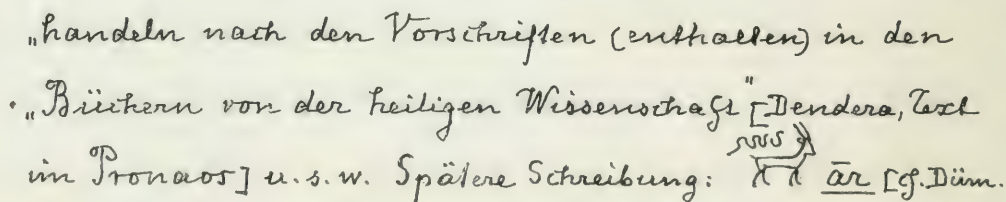 „handeln nach den Vorschriften (enthalten) in den
„Büchern von der heiligen Wissenschaft" [Dendera, Text
im Pronaos] u. s. w. Spätere Schreibung: ār [cf. Düm.